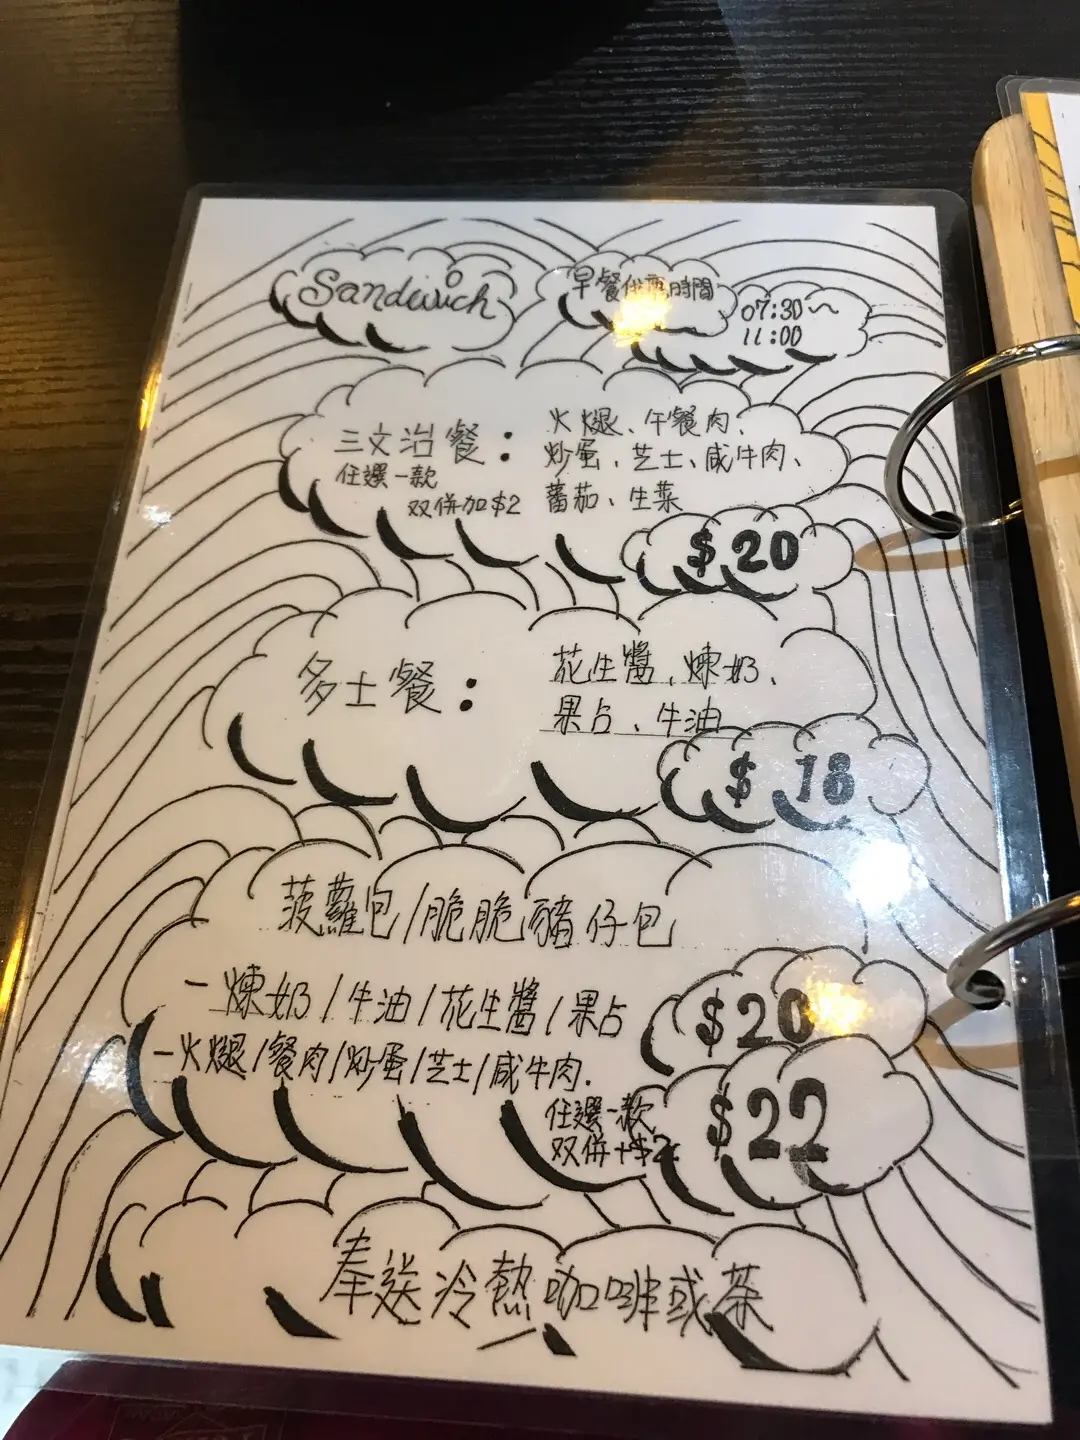 Sandwich
早餐供應時間
07:30~
11:00
三文治餐：
火腿、午餐肉、
炒蛋、芝士、咸牛肉、
蕃茄、生菜
任選一款
双併加$2
$20
多士餐：
花生醬、煉奶、
果占、牛油
$18
菠蘿包/脆脆豬仔包
-煉奶/牛油/花生醬/果占
$20
-火腿/餐肉/炒蛋/芝士/咸牛肉.
任選一款
双併+$2
$22
奉送冷熱咖啡或茶